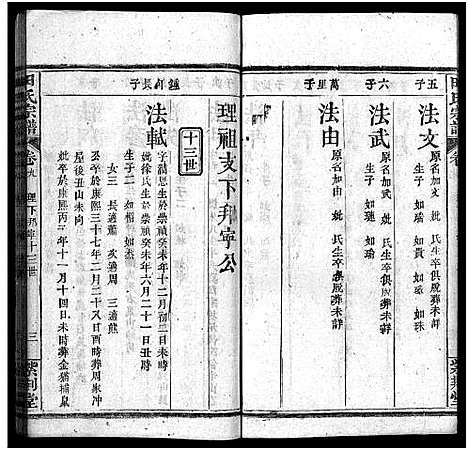 五子
法文
原名加文 妣 氏生卒俱葬未詳
生子 如瑜 如貴 如珠
六子
法武
原名加武 妣 氏生卒俱葬未詳
生子 如璉 如瑜
萬里子
法由
原名加由 妣 氏生卒俱葬未詳
理祖支下邦寧公
十三世
鍾年長子
法軾
字潤恩生於崇禎癸未年十二月初三日未時
妣徐氏生於崇禎癸未年六月二十一日丑時
生子二 如楷 如
女三 長適蕭 次適周 三適熊
公卒於康熙三十七年二月二十又日酉時葬周家冲
屋後丑山未向
妣卒於康熙丙三年十一月十四日未時葬金
田氏宗譜
卷九 理下邦寧十三世
三
紫荊堂
田氏宗譜
卷
紫荊堂